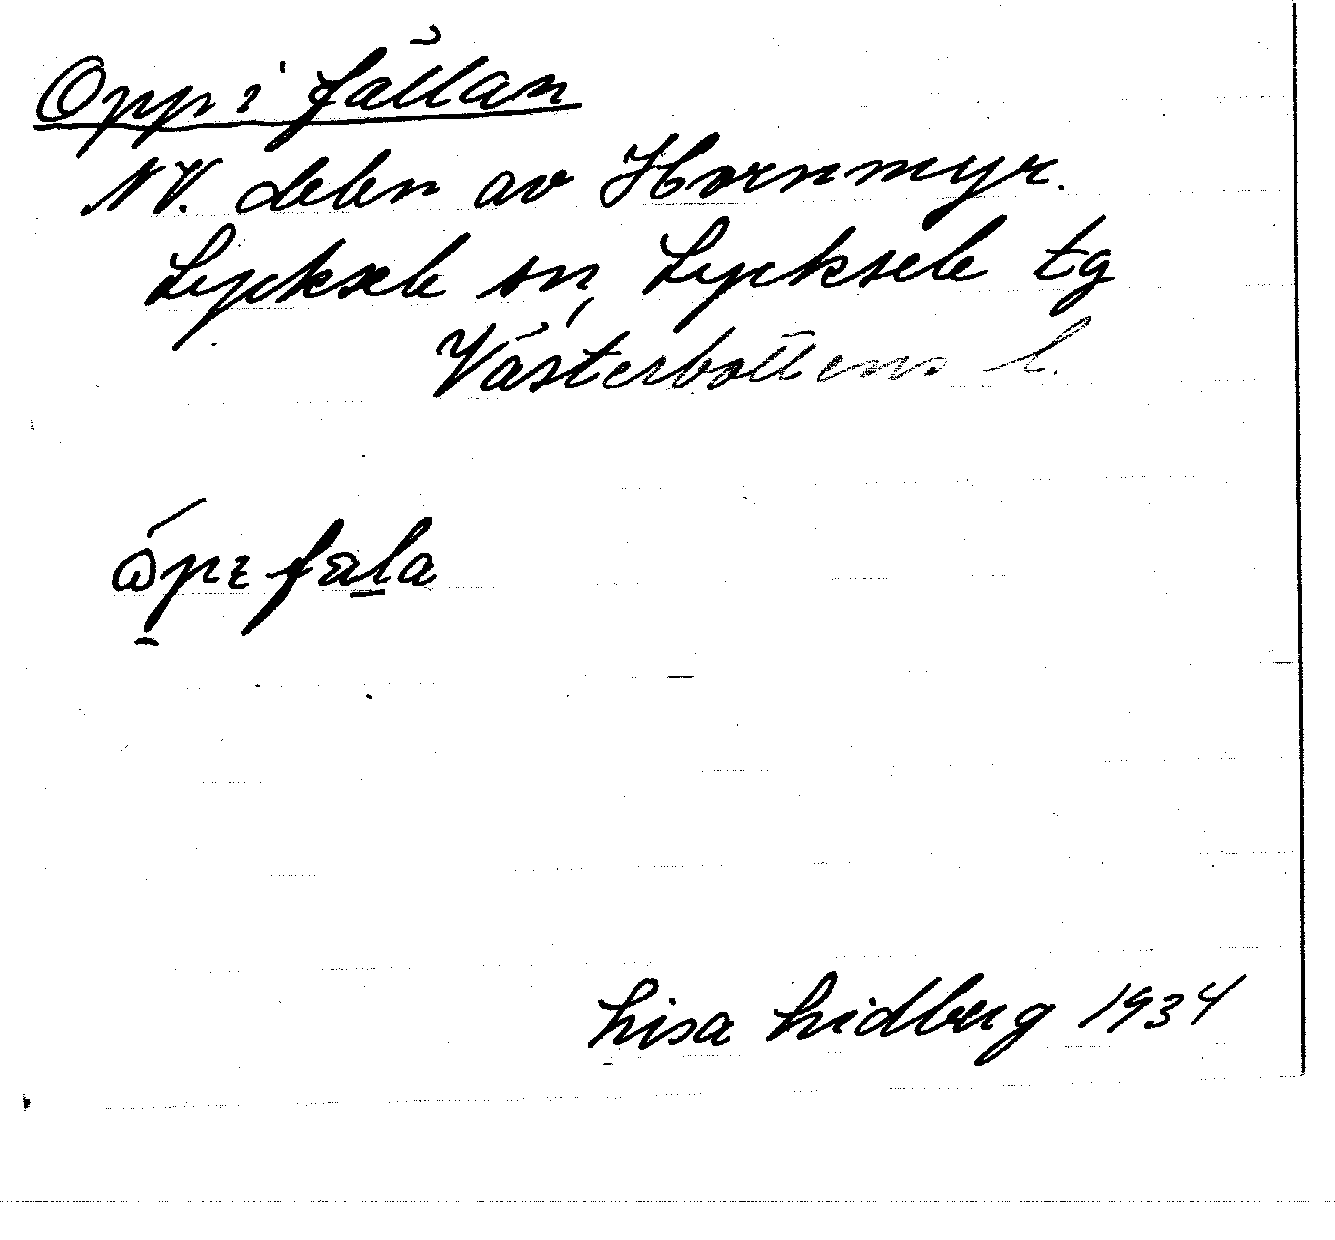 Opp i fällan
NV. delen av Hornmyr.
Lycksele sn, Lycksele tg
Västerbottens l.
Lisa Lidberg 1934